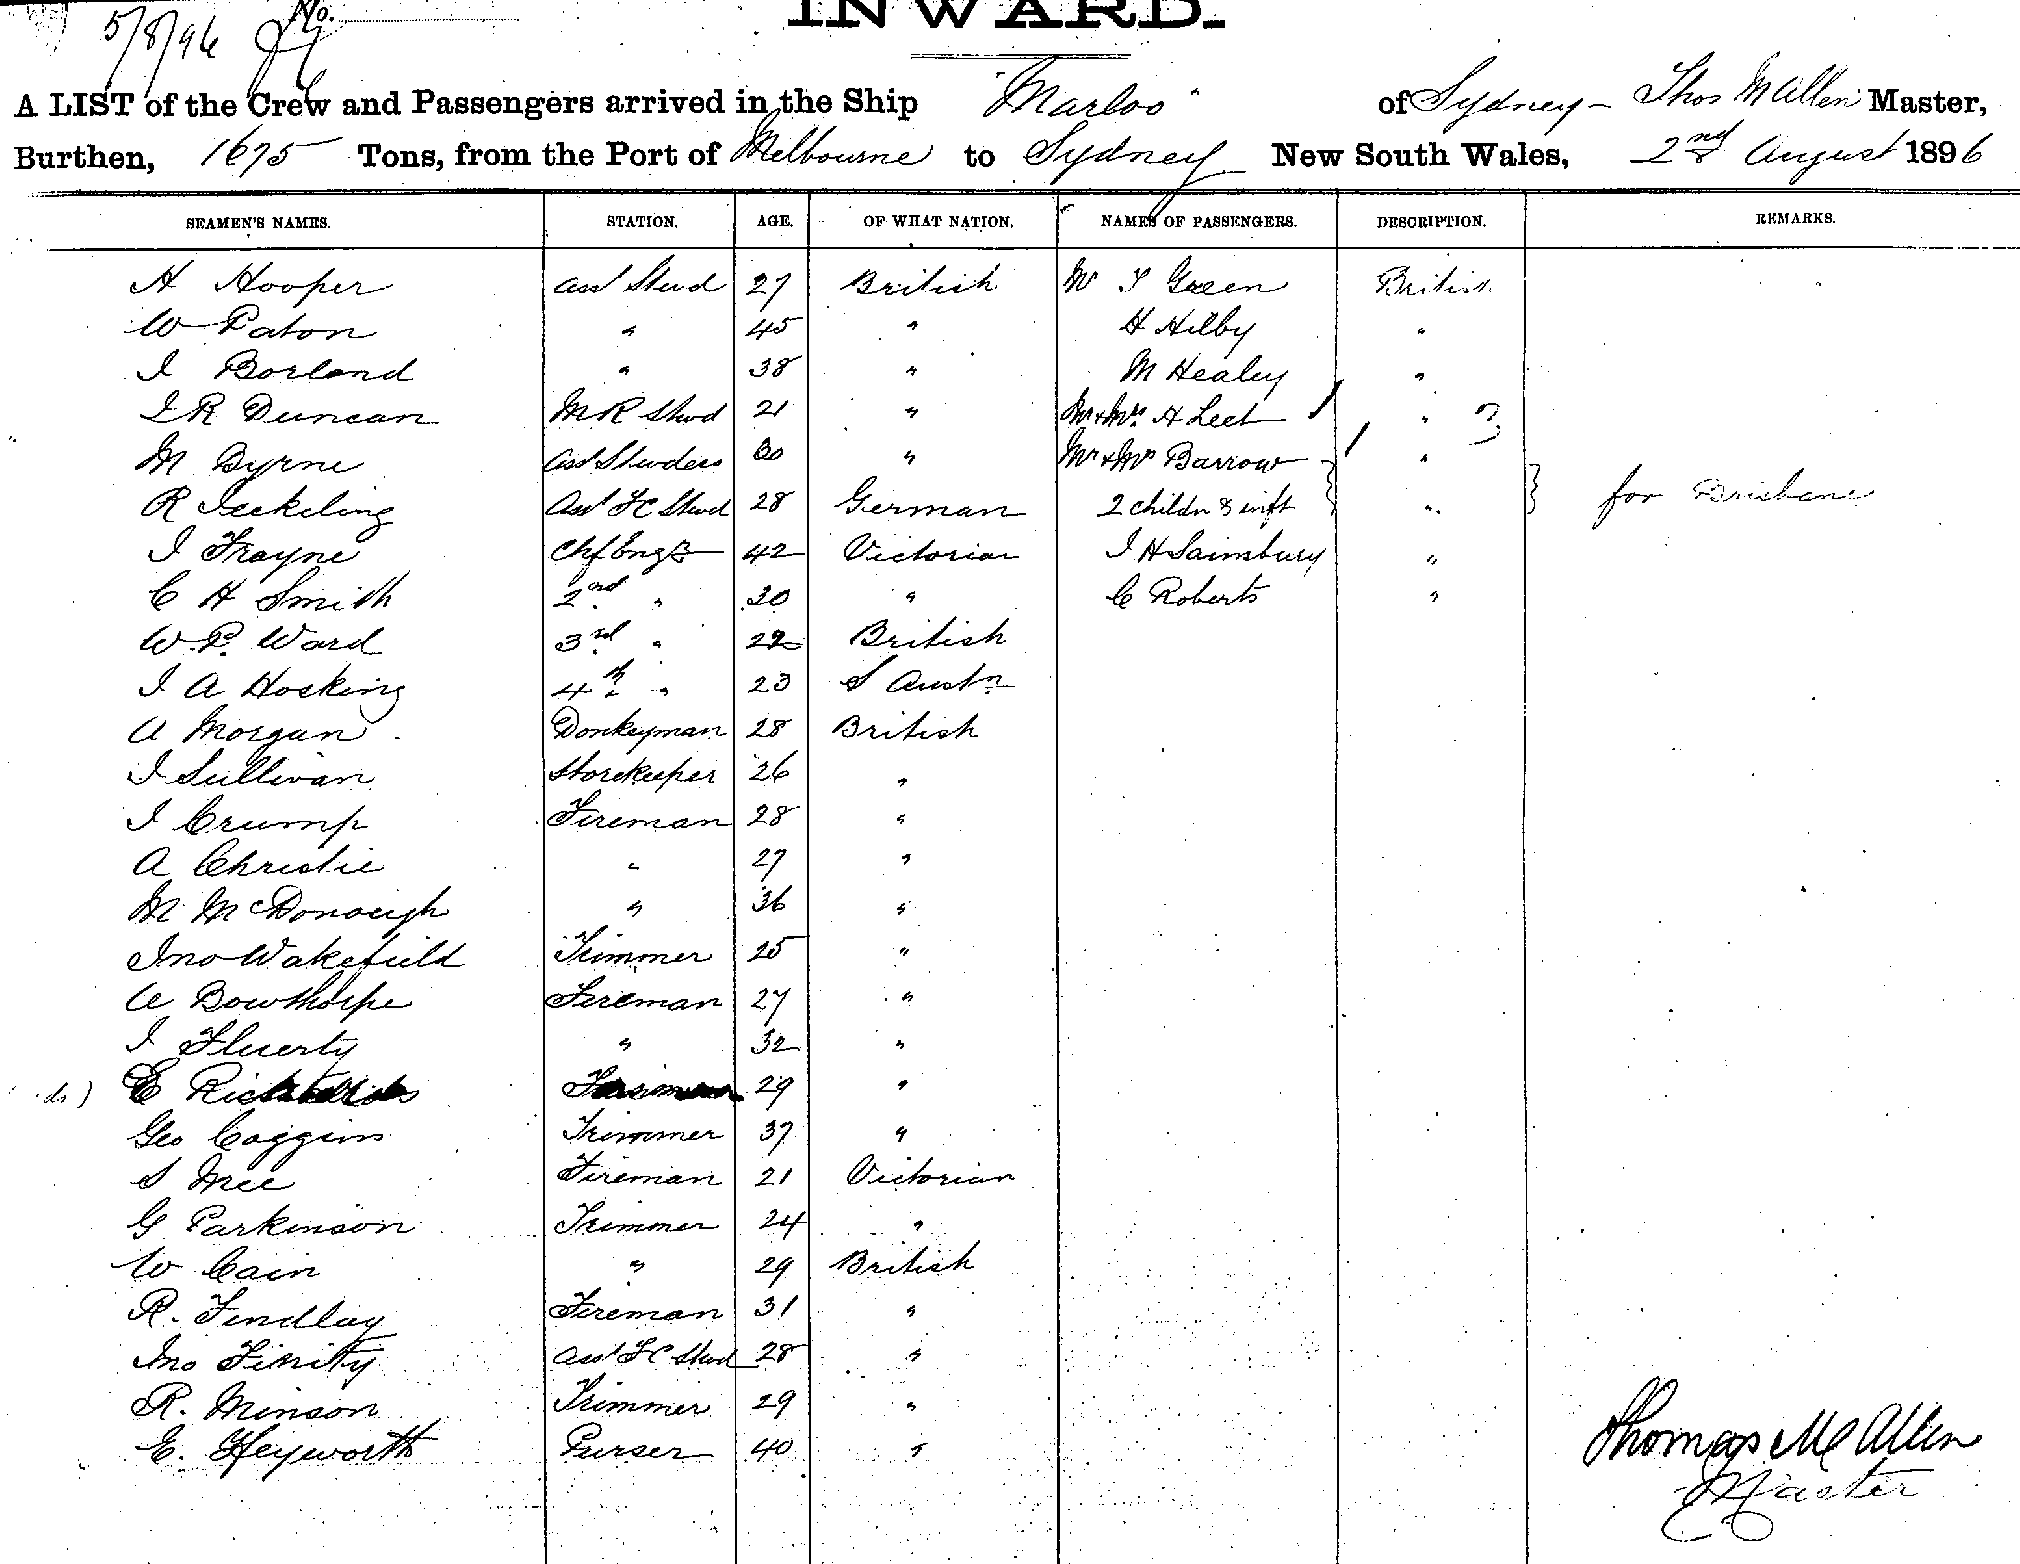 5/8/96 No.
INWARD.
A LIST of the Crew and Passengers arrived in the Ship "Marloo" of Sydney - Thos McAllen Master,
Burthen, 1675 Tons, from the Port of Melbourne to Sydney New South Wales, 2nd August 1896
SEAMEN'S NAMES. STATION. AGE. OF WHAT NATION. NAMES OF PASSENGERS. DESCRIPTION. REMARKS.
H Hooper Asst Stwd 27 British Mr T Green British
W Paton " 45 " H Hilby "
J Borland " 38 " M Healey "
J R Duncan M R Stwd 21 " Mr & Mrs A Leet "
M Byrne Asst Stwdess 30 " Mr & Mrs Barrow "
R Asst FC Stwd 28 German 2 childn & inft " for Brisbane
J Frayne Chf Engr 42 Victorian J H Sainsbury "
C H Smith 2nd " 30 " C Roberts "
W P. Ward 3rd " 22 British
J A Hosking 4th " 23 S Austn
A Morgan Donkeyman 28 British
J Sullivan Storekeeper 26 "
J Crump Fireman 28 "
A Christie " 27 "
M McDonough " 36 "
Jno Wakefield Trimmer 25 "
A Bowthorpe Fireman 27 "
J Fluerty " 32 "
ds) E Richards Fireman 29 "
Geo Coggins Trimmer 37 "
S Mee Fireman 21 Victorian
G Parkinson Trimmer 24 "
W Cain " 29 British
R. Findlay Fireman 31 "
Jno Finity Asst FC Stwd 28 "
R. Minson Trimmer 29 "
E. Heyworth Purser 40 "
Thomas McAllen
Master